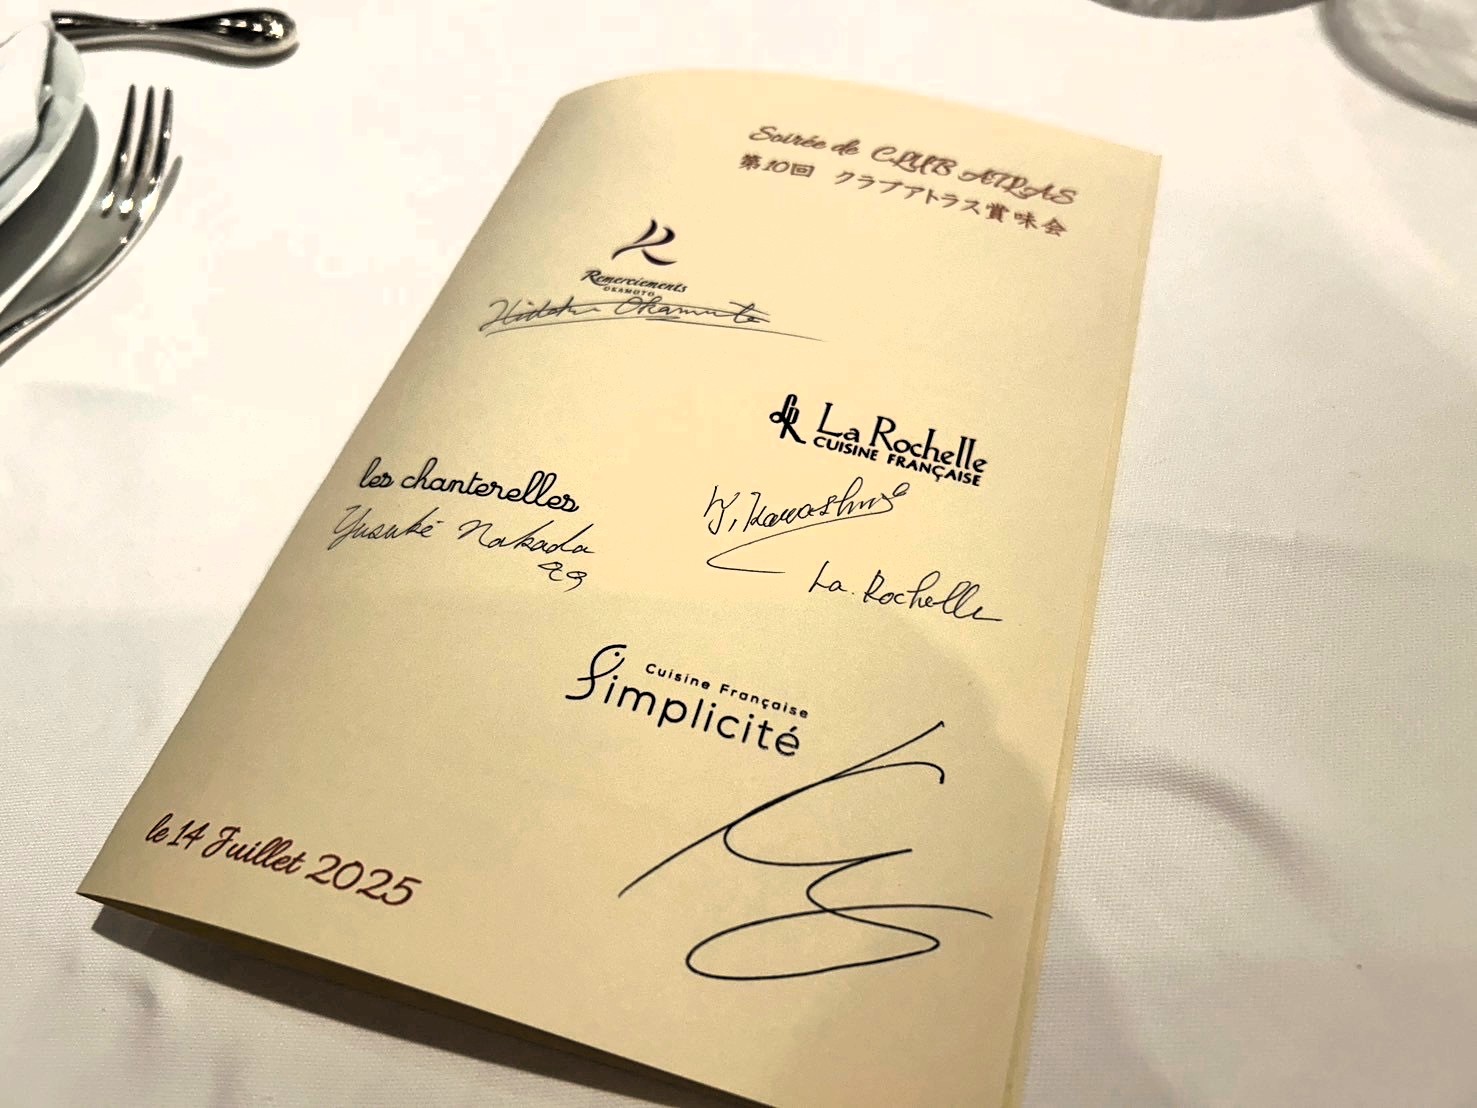 Soirée de CLUB ATLAS
第10回 クラブアトラス賞味会
Remerciements
OKAMOTO
Okamoto
La Rochelle
CUISINE FRANÇAISE
les chanterelles
Yusuké Nakada
La Rochelle
Cuisine Française
Simplicité
le 14 Juillet 2025